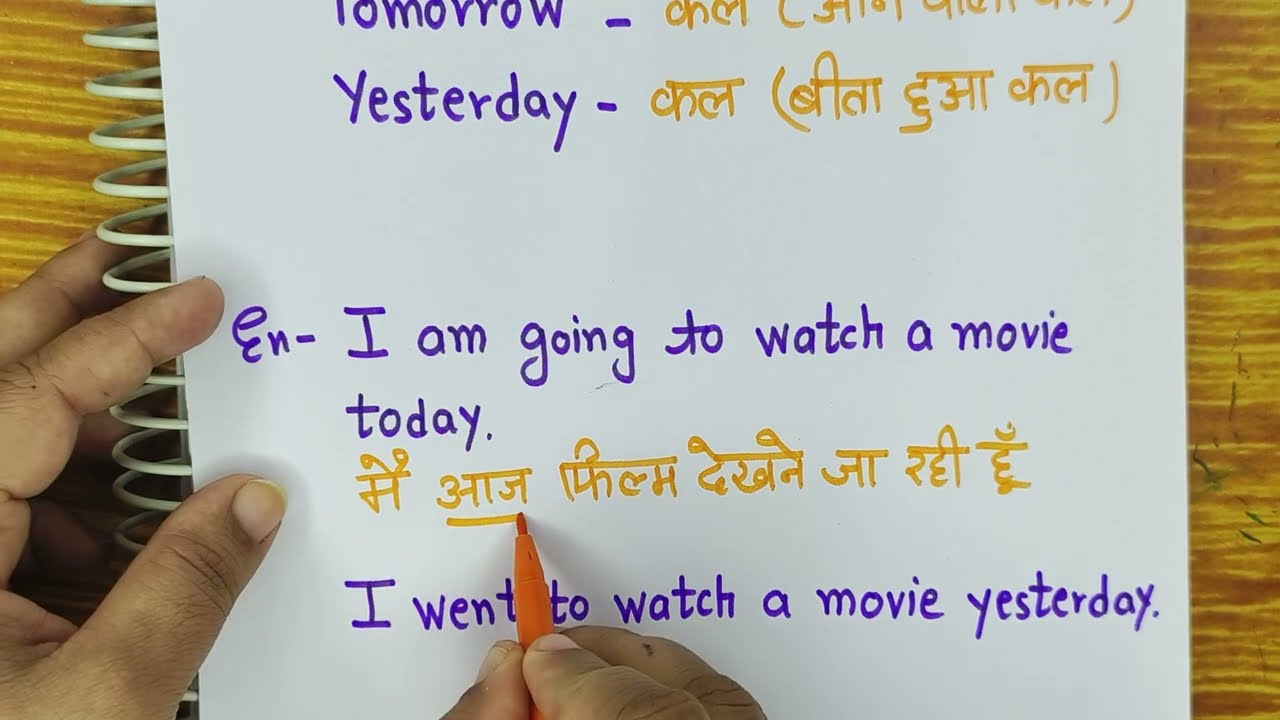 Tomorrow - कल (आने वाला कल)
Yesterday - कल (बीता हुआ कल)
En- I am going to watch a movie
today.
मैं आज फिल्म देखने जा रही हूँ
I went to watch a movie yesterday.